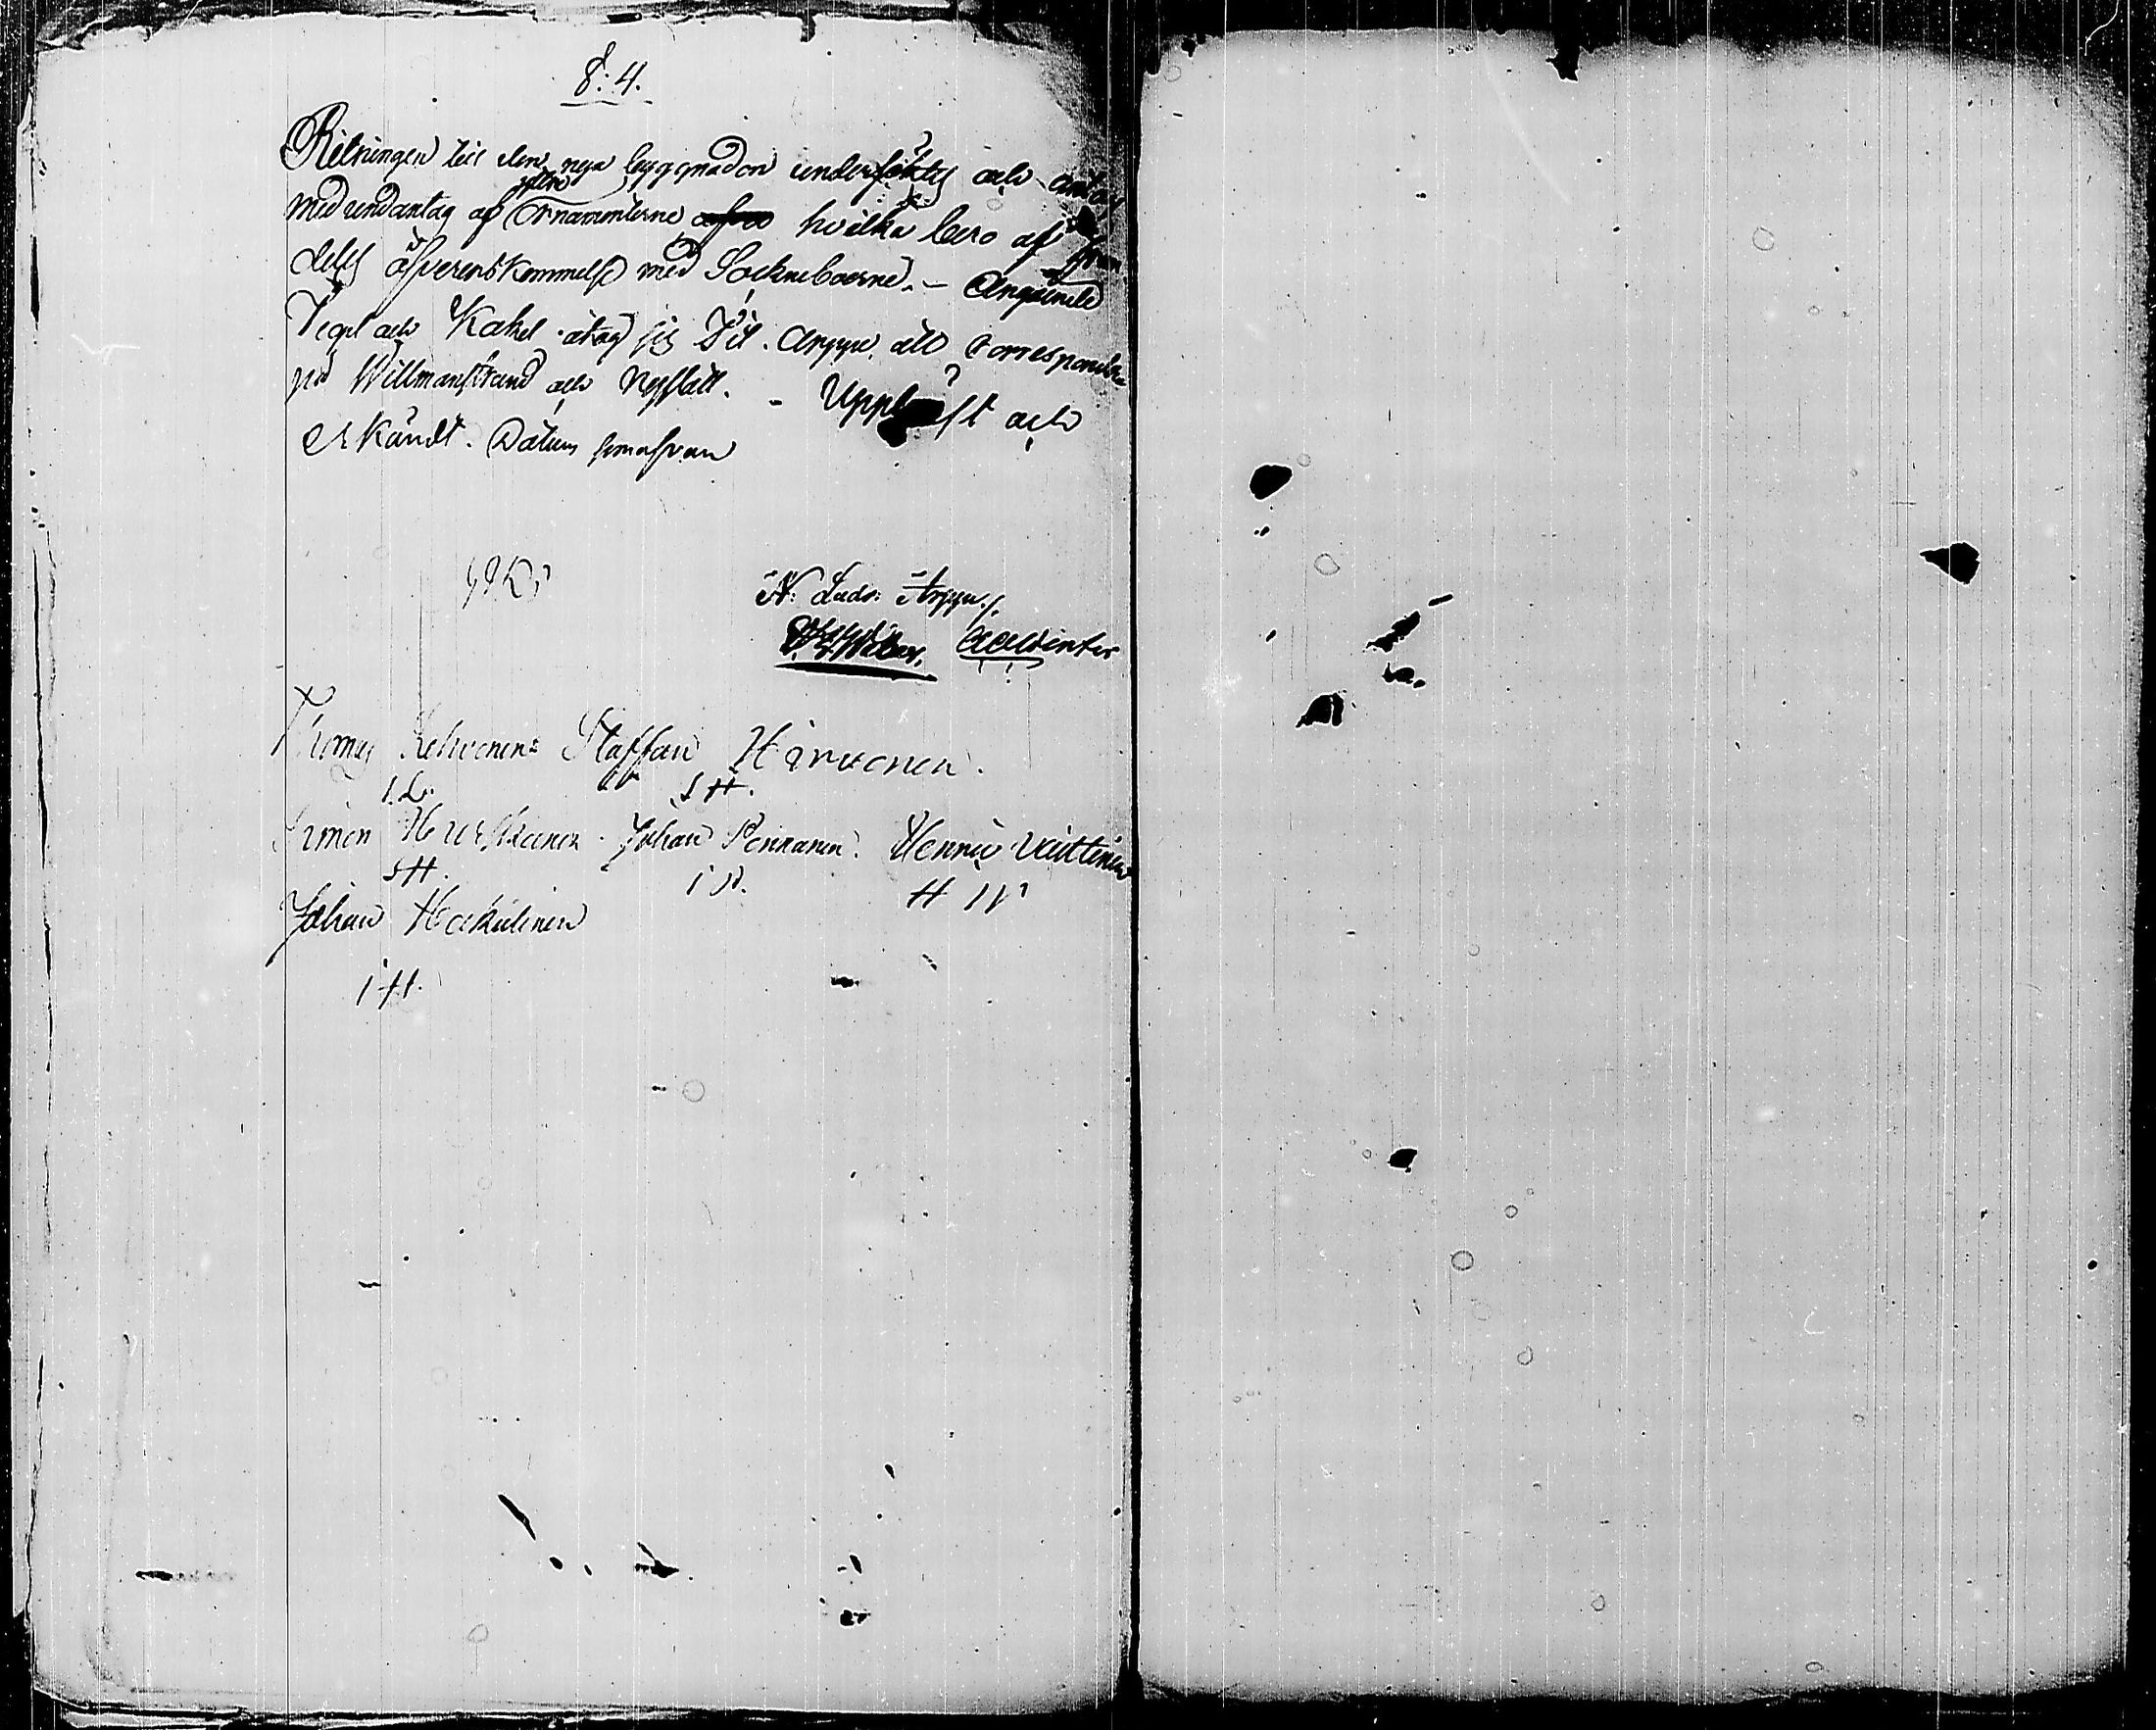 §: 4.
Ritningen till den nya byggnaden undersöktes och antogs
yttre
med undantag af Ornamenterne hvilka bero af fram
deles öfverenskommelse med Sockneboerne. – Angående
Tegel och Kakel åtog sig Arppe att correspondera
på Willmanstrand och Nyslott. – Uppläst och
erkändt. Datum som ofvan
N: Ludv: Arppe /.
Winter
Thomas Staffan Hirvonen.
S H.
Simon Hurskanen Johan Pennanen. Henric Väittinen
S H. i P. H W
Johan Hackulinen
i H.